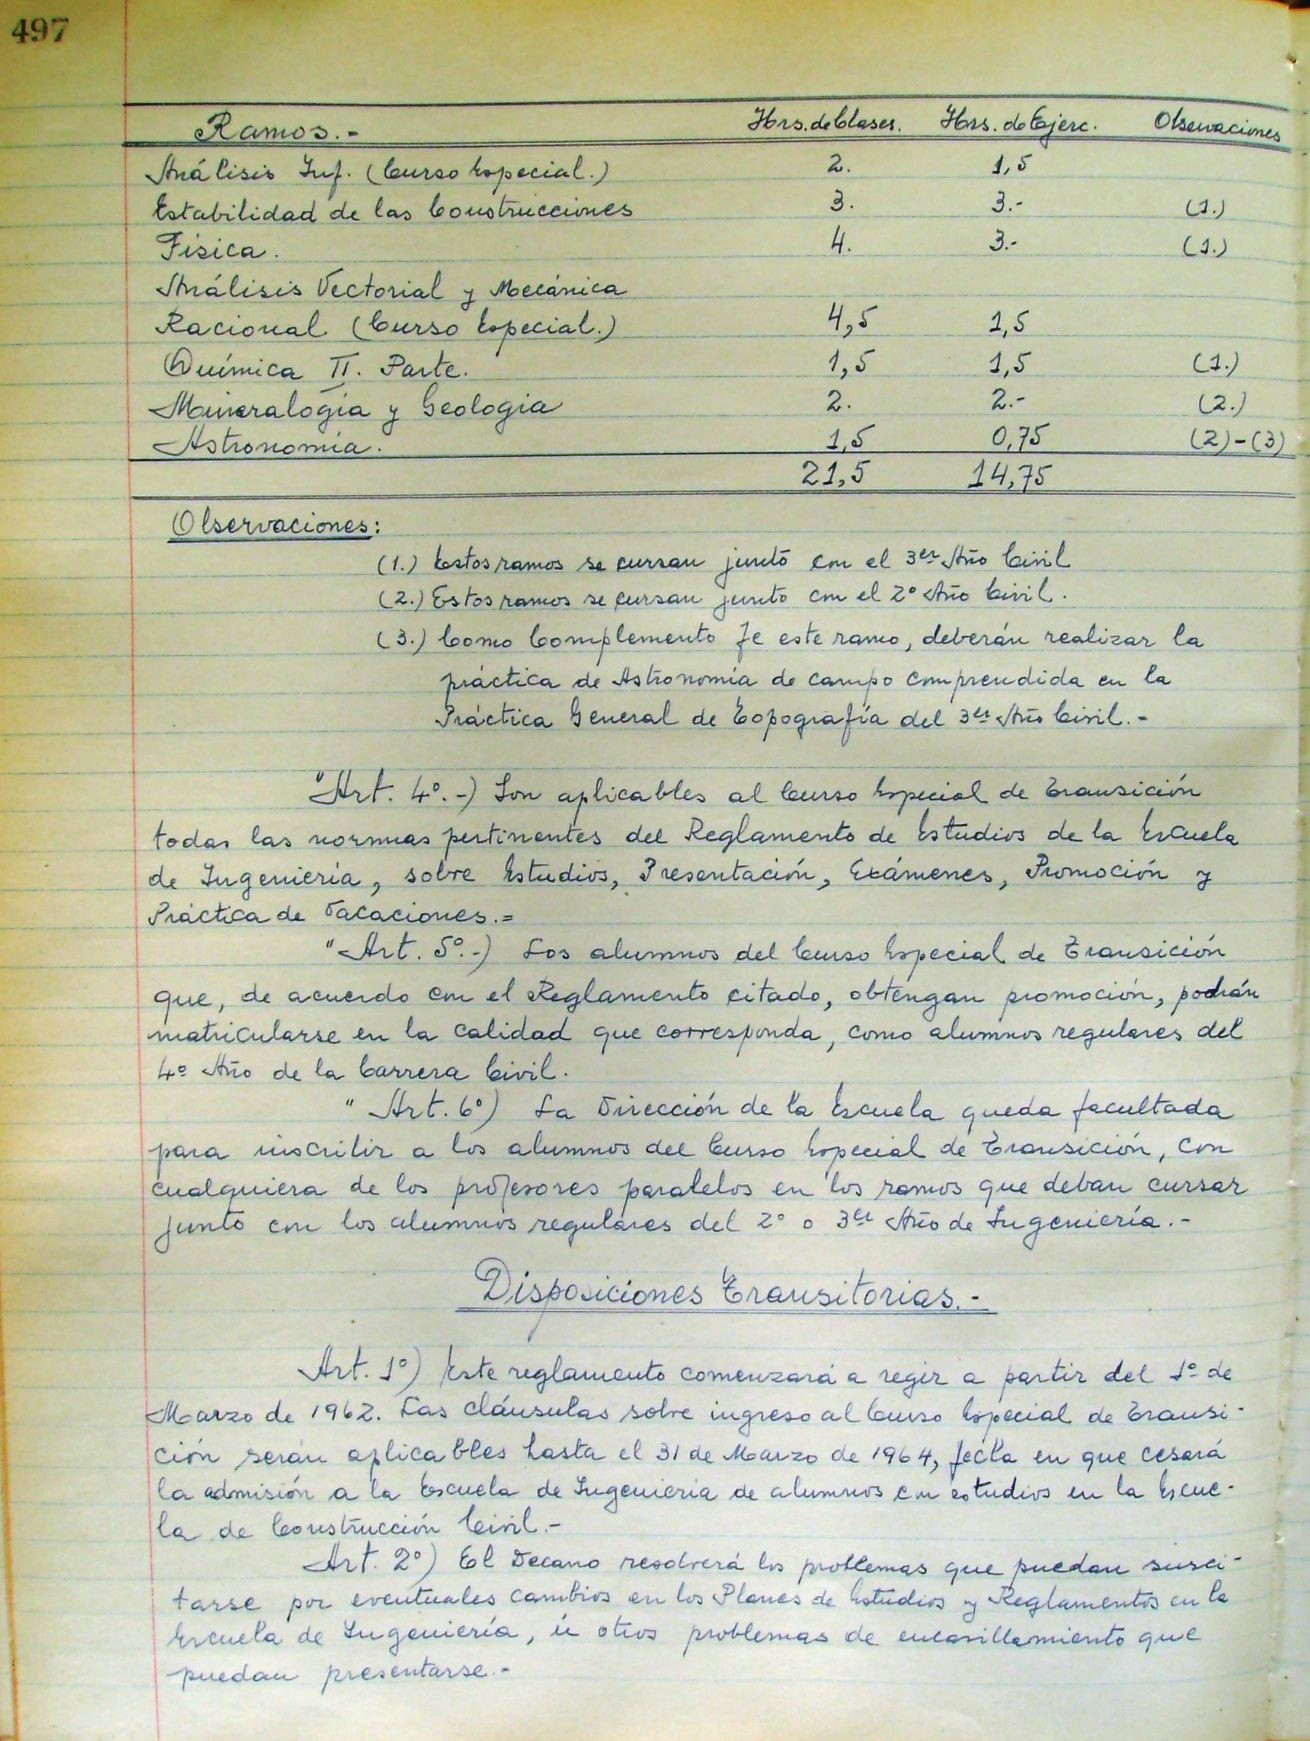 497
Ramos.- Hrs. de Clases. Hrs. de Ejerc. Observaciones
Análisis Inf. (Curso Especial.) 2. 1,5
Estabilidad de las Construcciones 3. 3.- (1.)
Física. 4. 3.- (1.)
Análisis Vectorial y Mecánica
Racional (Curso Especial.) 4,5 1,5
Química II. Parte. 1,5 1,5 (1.)
Mineralogía y Geologia 2. 2.- (2.)
Astronomía. 1,5 0,75 (2)-(3)
21,5 14,75
Observaciones:
(1.) Estos ramos se cursan junto con el 3er Año Civil
(2.) Estos ramos se cursan junto con el 2° Año Civil.
(3.) Como Complemento de este ramo, deberán realizar la
práctica de Astronomía de campo comprendida en la
Práctica General de Topografía del 3er Año Civil.-
"Art. 4°.-) Son aplicables al Curso Especial de Transición
todas las normas pertinentes del Reglamento de Estudios de la Escuela
de Ingeniería, sobre Estudios, Presentación, Exámenes, Promoción y
Práctica de Vacaciones.=
"Art. 5°.-) Los alumnos del Curso Especial de Transición
que, de acuerdo con el Reglamento citado, obtengan promoción, podrán
matricularse en la calidad que corresponda, como alumnos regulares del
4° Año de la Carrera Civil.
"Art. 6°) La Dirección de la Escuela queda facultada
para inscribir a los alumnos del Curso Especial de Transición, con
cualquiera de los profesores paralelos en los ramos que deban cursar
junto con los alumnos regulares del 2° o 3er Año de Ingeniería.-
Disposiciones Transitorias.-
Art. 1°) Este reglamento comenzará a regir a partir del 1° de
Marzo de 1962. Las cláusulas sobre ingreso al Curso Especial de Transi-
ción serán aplicables hasta el 31 de Marzo de 1964, fecha en que cesará
la admisión a la Escuela de Ingeniería de alumnos con estudios en la Escue-
la de Construcción Civil.-
Art. 2°) El Decano resolverá los problemas que puedan susci-
tarse por eventuales cambios en los Planes de Estudios y Reglamentos en la
Escuela de Ingeniería, u otros problemas de encasillamiento que
puedan presentarse.-